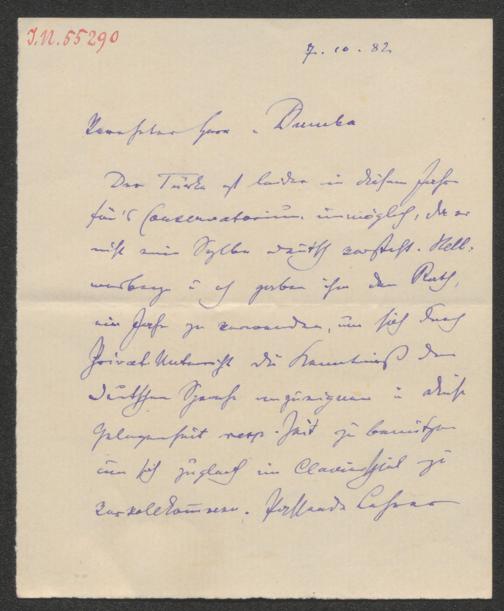 I.N. 55290
7. 10. 82
Verehrter Herr v. Dumba
Der Türke ist leider in diesem Jahr
für's Conservatorium unmöglich, da er
nicht eine Sylbe deutsch versteht. Hell-
mesberger u ich gaben ihm den Rath,
ein Jahr zu verwenden, um sich durch
Privat-Unterricht die Kenntniß der
deutschen Sprache anzueignen u diese
Gelegenheit resp. Zeit zu benützen
um sich zugleich im Clavierspiel zu
vervollkommnen. Passende Lehrer